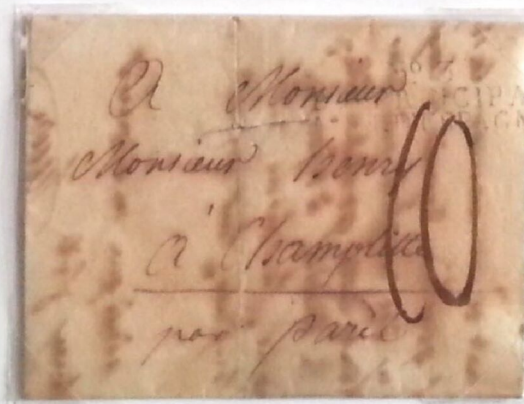 A Monsieur
Monsieur henry
à Champlitte
par paris
No 3
10